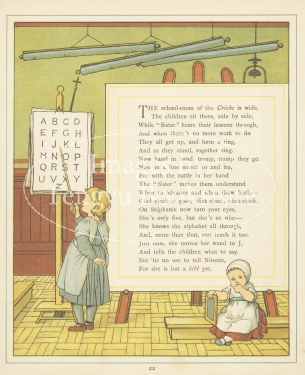 A B C D
E F G H
I J K L
M N O P
Q R S T
U V X Y
Z
THE school-room of the Crèche is wide,
The children sit there, side by side,
While "Sister" hears their lessons through,
And when there's no more work to do
They all get up, and form a ring,
And as they stand, together sing.
Now hand in hand, tramp, tramp they go,
Now in a line move to and fro,
For with the rattle in her hand
The "Sister" makes them understand
When to advance and when
On Stéphanie now turn your eyes,
She's only five, but she's so wise—
She knows the alphabet all through,
And, more than that, can teach it too.
Just now, she moves her wand to J,
And tells the children what to say.
But 'tis no use to tell Ninette,
For she is but a bébé yet.
22